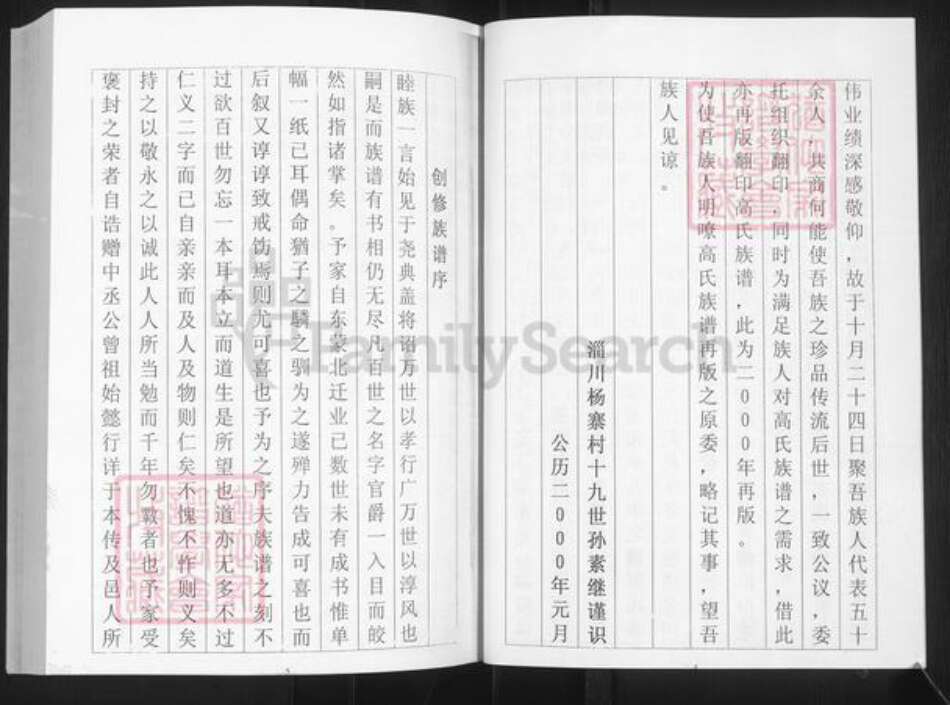 伟业绩深感敬仰，故于十月二十四日聚吾族人代表五十
余人，共商何能使吾族之珍品传流后世，一致公议，委
托组织翻印，同时为满足族人对高氏族谱之需求，借此
亦再版翻印高氏族谱，此为二000年再版。
为使吾族人明暸高氏族谱再版之原委，略记其事，望吾
族人见谅。
淄川杨寨村十九世孙素继谨识
公历二000年元月
创修族谱序
睦族一言始见于尧典盖将诏万世以孝行广万世以淳风也
嗣是而族谱有书相仍无尽凡百世之名字官爵一入目而皎
然如指诸掌矣。予家自东蒙北迁业已数世未有成书惟单
幅一纸已耳偶命犹子之驎之驯为之遂殚力告成可喜也而
后叙又谆谆致戒饬焉则尤可喜也予为之序夫族谱之刻不
过欲百世勿忘一本耳本立而道生是所望也道亦无多不过
仁义二字而已自亲亲而及人及物则仁矣不愧不怍则义矣
持之以敬永之以诚此人人所当勉而千年勿斁者也予家受
褒封之荣者自诰赠中丞公曾祖始懿行详于本传及邑人所
FamilySearch